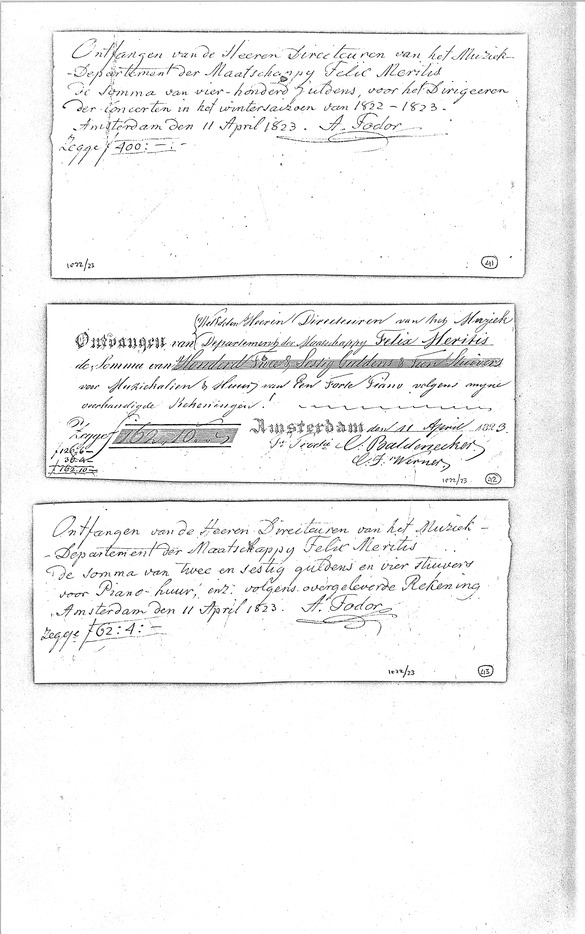 Ontfangen van de Heeren Directeuren van het Muziek-
-Departement der Maatschappy Felix Meritis
de somma van vier-honderd guldens, voor het Dirigeeren
der concerten in het wintersaizoen van 1822-1823.
Amsterdam den 11 April 1823. A. Fodor
Zegge ƒ 400:-:-
1822/23
41
Heeren Directeuren van het Muziek
Ontvangen van Departement der Maatschappy Felix Meritis
de Somma van Honderd Twee & Sestig Guldens & Tien Stuivers
voor Muziekalien & Huur van Een Forte Piano volgens myne
overhandigde Rekeningen!
Zegge ƒ 162,,10,,-
Amsterdam den 11 April 1823.
ƒ 126:6-
ƒ 162,10-
C. F. Werner
1822/23
42
Ontfangen van de Heeren Directeuren van het Muziek-
-Departement der Maatschappy Felix Meritis
de somma van twee en sestig guldens en vier stuivers
voor Piano-huur, enz: volgens overgeleverde Rekening
Amsterdam den 11 April 1823. A. Fodor
Zegge ƒ 62:4:-
1822/23
43